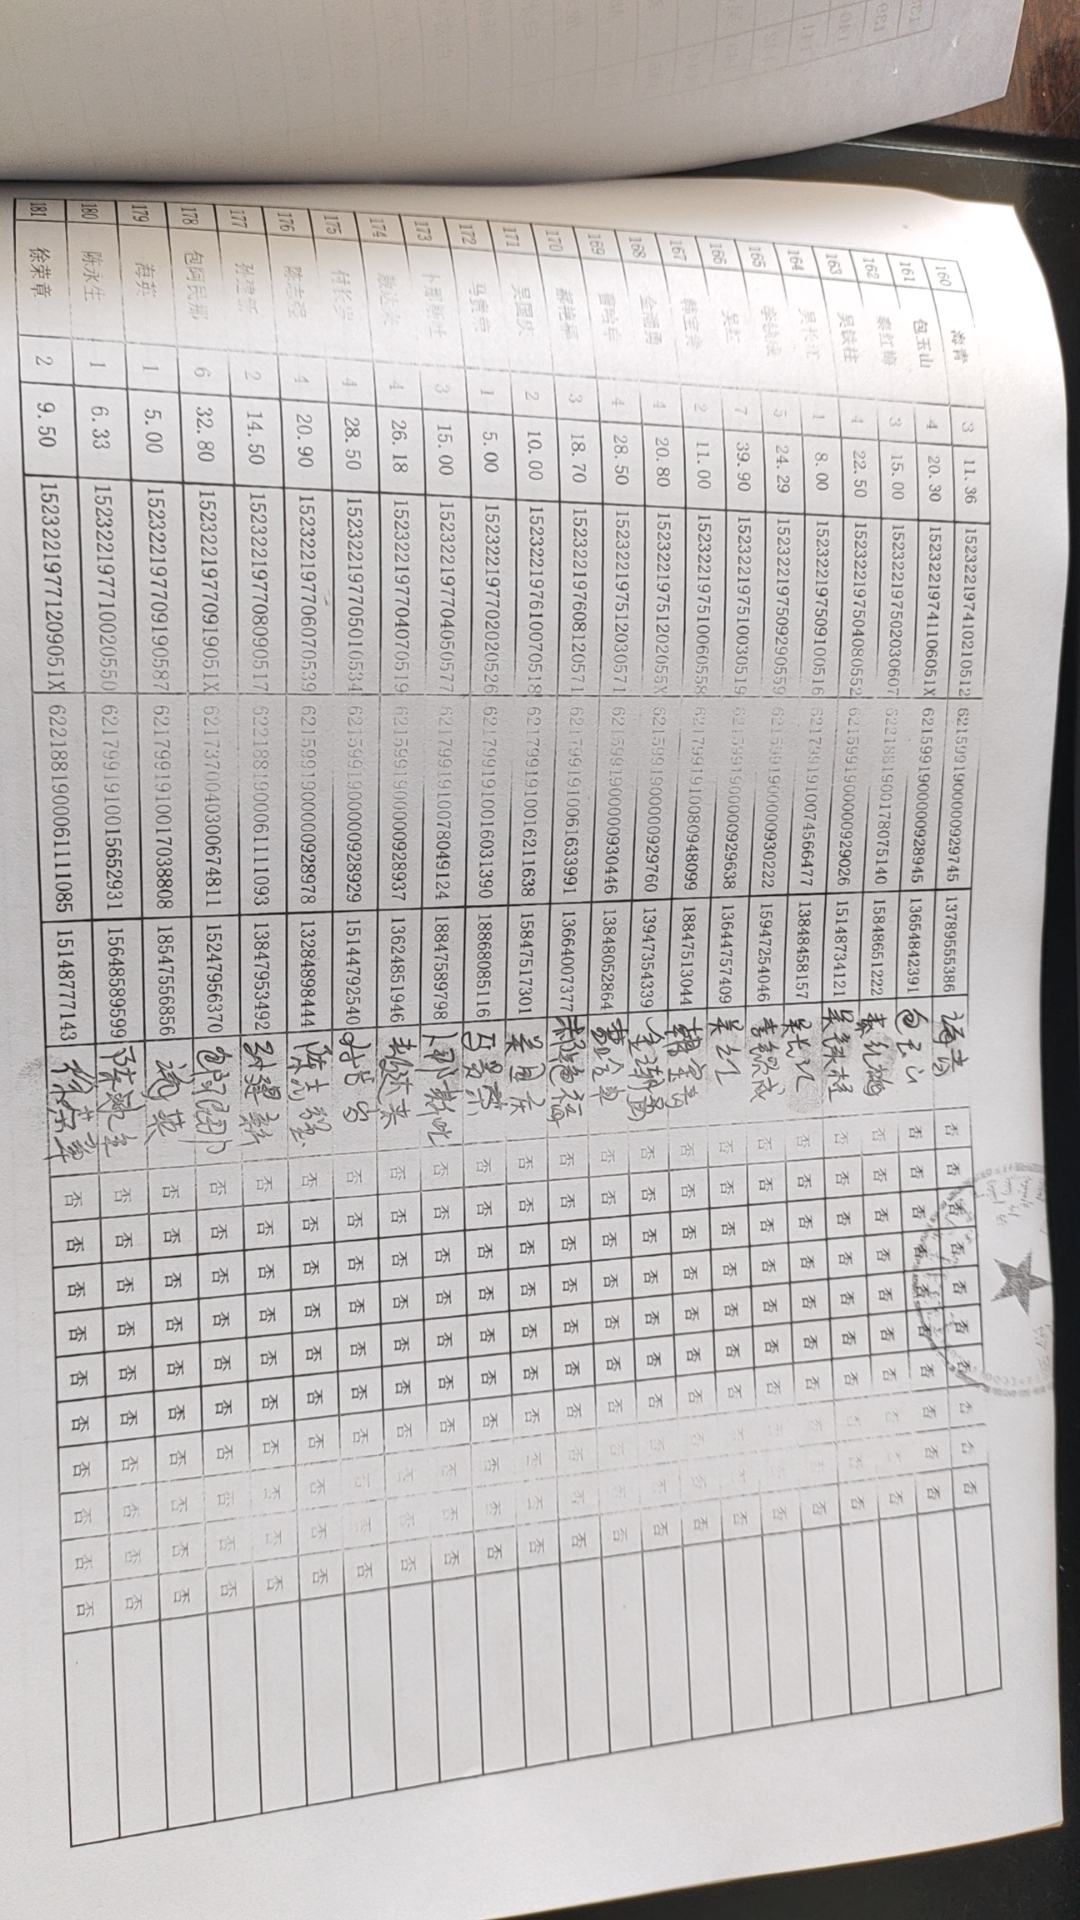 160 海青 3 11.36 152322197410210512 6215991900000929745 13789555386 海青 否 否 否 否 否 否 否 否 否 否
161 包玉山 4 20.30 15232219741106051X 6215991900000928945 13654842391 包玉山 否 否 否 否 否 否 否 否 否 否
162 秦红梅 3 15.00 152322197502030607 6221881900178075140 15848651222 秦红梅 否 否 否 否 否 否 否 否 否 否
163 吴铁柱 4 22.50 152322197504080552 6215991900000929026 15148734121 吴铁柱 否 否 否 否 否 否 否 否 否 否
164 吴长江 1 8.00 152322197509100516 6217991910074566477 13848458157 吴长江 否 否 否 否 否 否 否 否 否 否
165 成 5 24.29 152322197509290559 6215991900000930222 15947254046 成 否 否 否 否 否 否 否 否 否 否
166 吴红 7 39.90 152322197510030519 6215991900000929638 13644757409 吴红 否 否 否 否 否 否 否 否 否 否
167 韩宝 2 11.00 152322197510060558 6217991910080948099 18847513044 韩宝 否 否 否 否 否 否 否 否 否 否
168 金 勇 4 20.80 15232219751202055X 6215991900000929760 13947354339 金 否 否 否 否 否 否 否 否 否 否
169 4 28.50 152322197512030571 6215991900000930446 13848052864 否 否 否 否 否 否 否 否 否 否
170 郝艳福 3 18.70 152322197608120571 6217991910061633991 13664007377 郝艳福 否 否 否 否 否 否 否 否 否 否
171 吴国庆 2 10.00 152322197610070518 6217991910016211638 15847517301 吴国庆 否 否 否 否 否 否 否 否 否 否
172 马 荣 1 5.00 152322197702020526 6217991910016031390 18868085116 马 荣 否 否 否 否 否 否 否 否 否 否
173 卜那斯吐 3 15.00 152322197704050577 6217991910078049124 18847589798 卜那斯吐 否 否 否 否 否 否 否 否 否 否
174 4 26.18 152322197704070519 6215991900000928937 13624851946 否 否 否 否 否 否 否 否 否 否
175 付长 4 28.50 152322197705010534 6215991900000928929 15144792540 付 否 否 否 否 否 否 否 否 否 否
176 陈志强 4 20.90 152322197706070539 6215991900000928978 13284898444 陈志强 否 否 否 否 否 否 否 否 否 否
177 孙建新 2 14.50 152322197708090517 6221881900061111093 13847953492 孙建新 否 否 否 否 否 否 否 否 否 否
178 包阿民那 6 32.80 15232219770919051X 6217370040300674811 15247956370 包阿民那 否 否 否 否 否 否 否 否 否 否
179 海英 1 5.00 152322197709190587 6217991910017038808 18547556856 海英 否 否 否 否 否 否 否 否 否 否
180 陈永生 1 6.33 152322197710020550 6217991910015652931 15648589599 陈永生 否 否 否 否 否 否 否 否 否 否
181 徐荣章 2 9.50 15232219771209051X 6221881900061111085 15148777143 徐荣章 否 否 否 否 否 否 否 否 否 否